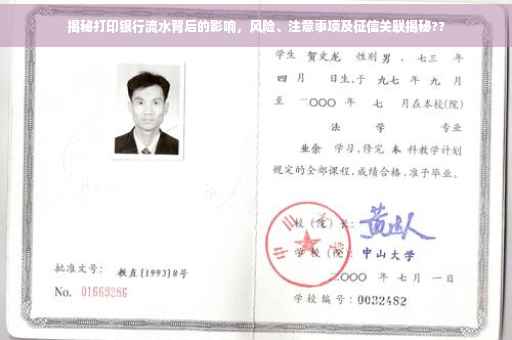 揭秘打印银行流水背后的影响，风险、注意事项及征信关联揭秘??
学生 贺文龙 性别 男 ，七三 年
四 月 日生,于 九七 年 九 月
至 二〇〇〇 年 七 月在本校(院)
法 学 专业
业余 学习,修完 本 科教学计划
规定的全部课程,成绩合格,准予毕业。
校（院）长：
学校（院）： 中山大学
二〇〇〇 年 七 月 一 日
学校编号：0032482
批准文号： 教直[1993]8号
No. 01669286